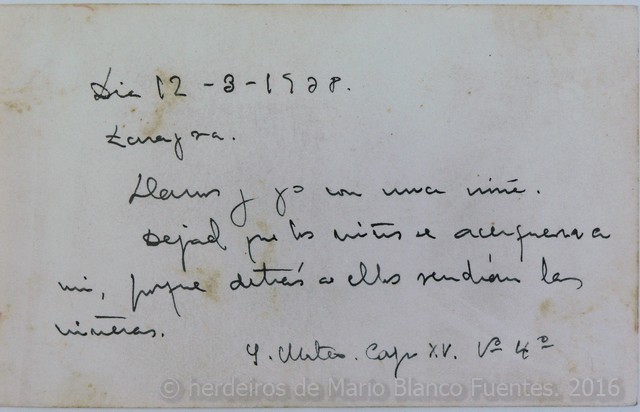 Dia 12-3-1928.
Zaragoza.
Llanos y yo con una niñe.
Dejad que los niños se acerquen a
mi, porque detrás de ellos vendrán las
niñeras.
S. Mateo. Cap. XV. Vº 4º
© herdeiros de Mario Blanco Fuentes. 2016